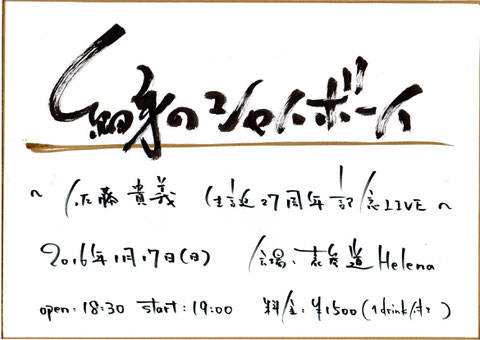 細身のシャイボーイ
~ 佐藤貴義 生誕27周年記念LIVE ~
2016年1月17日(日) 会場:表参道Helena
open:18:30 start:19:00 料金:¥1500(1drink付